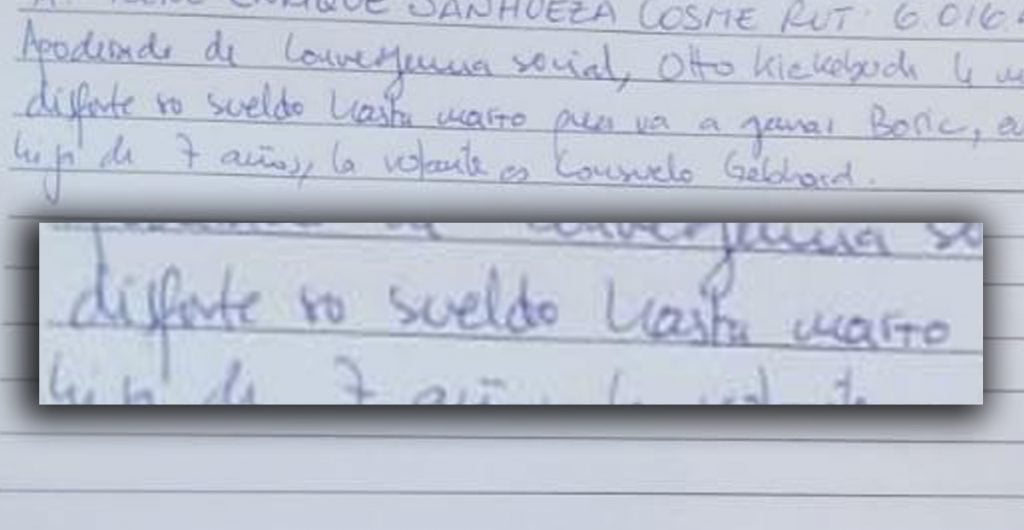 ENRIQUE SANHUEZA COSME RUT: 6.016.
Apoderado de Convergencia social, Otto Kickebuch le
disfrute su sueldo hasta marzo pues va a ganar Boric, a
hijo de 7 años, la votante es Consuelo Gebhard.
disfrute su sueldo hasta marzo
de 7